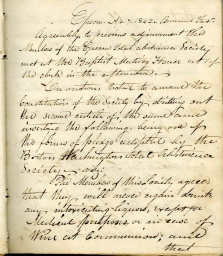 Epsom Apr 7 1842. Annual Meet.
Agreeably to previous adjournment the
Members of the Epsom Total abstinence Society
met at the Baptist Meeting House at
the clock in the afternoon.
On motion Voted to amend the
Constitution of the Society by striking out
the second article of the same and
inserting the following, being one of
the forms of pledge adopted by the
Boston Washington Total Abstinence
Society viz:
The Members of this Society agree
that they will never again drink
any intoxicating liquors, except for
Medicinal purposes or in case of
Wine at Communion; and
that